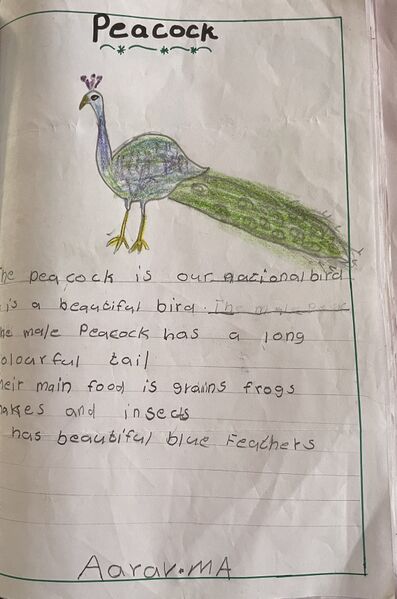 Peacock
The peacock is our national bird
is a beautiful bird. The male Peac
he male Peacock has a long
olourful tail
heir main food is grains frogs
nakes and insects
has beautiful blue Feathers
Aarav.MA